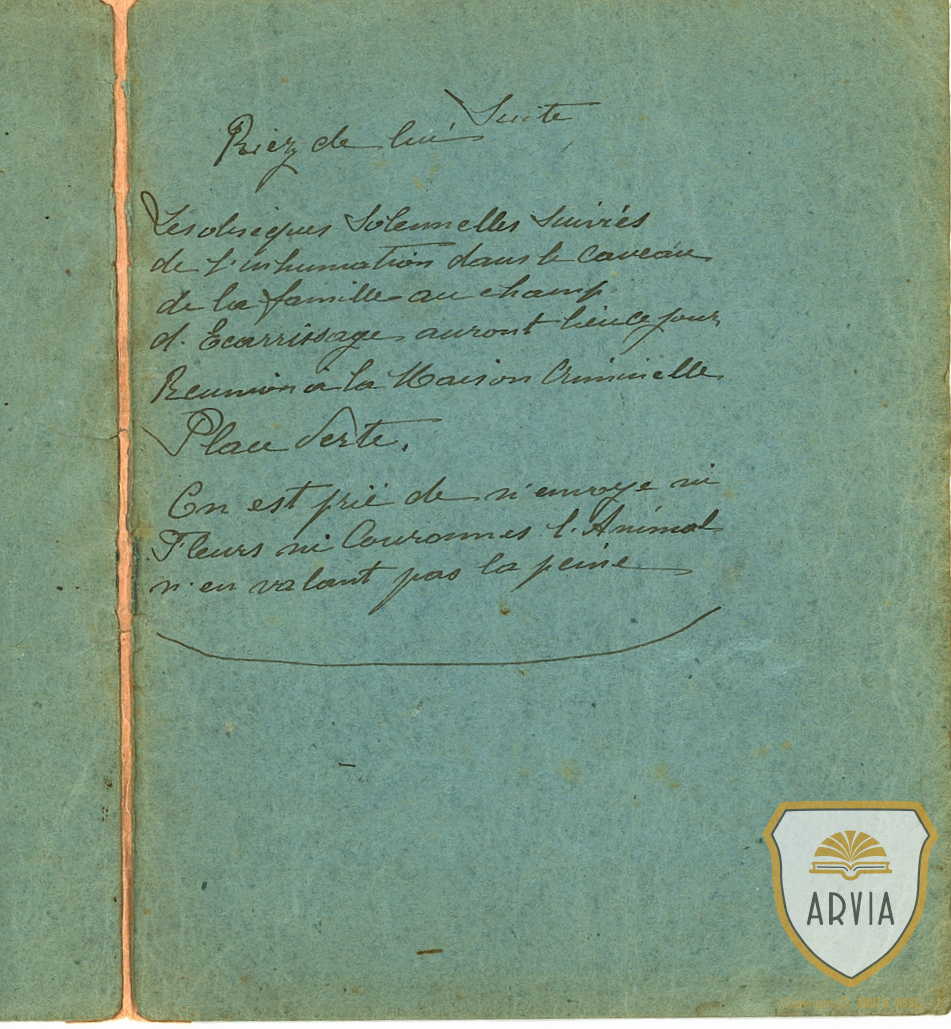 Suite
Riez de lui
Les obsèques Solennelles Suivies
de l'inhumation dans le caveau
de la famille au champ
d'Ecarrissage auront lieu ce jour
Reunion à la Maison Criminelle
Place Verte.
On est prié de n'envoye ni
Fleurs ni Couronnes l'Animal
n'en valant pas la peine
ARVIA